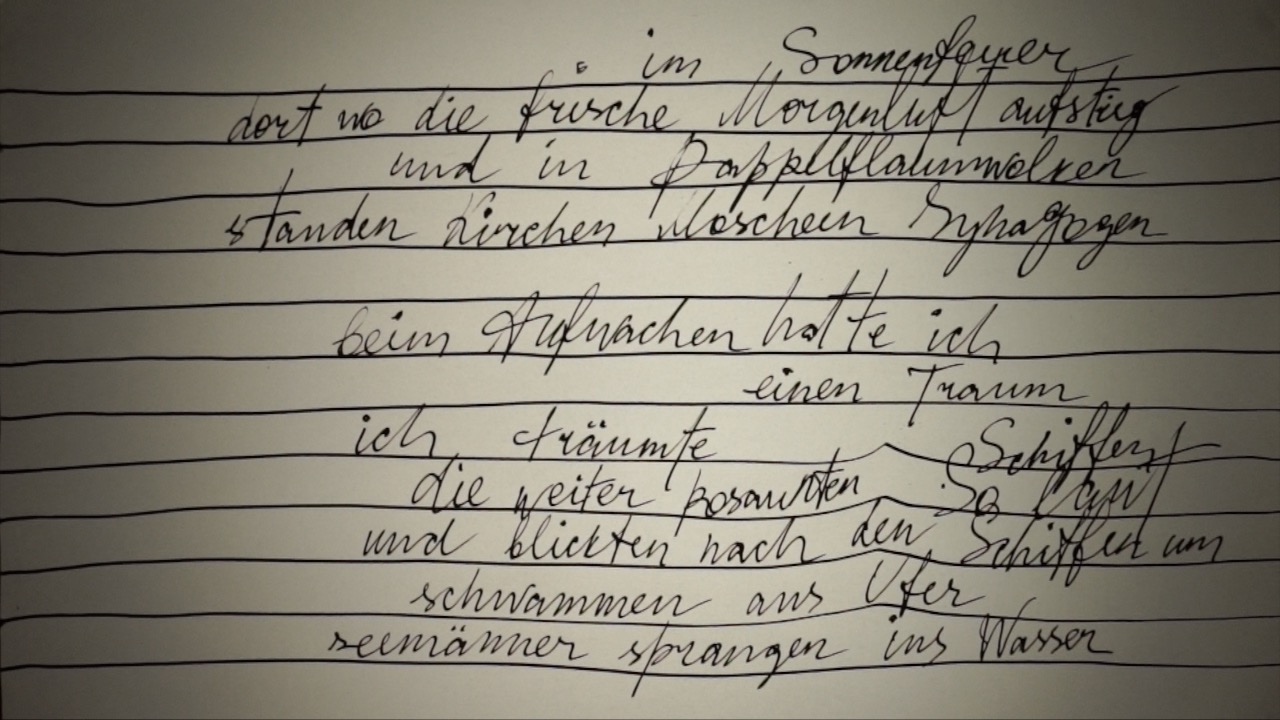 im Sonnenfeuer
dort wo die frische Morgenluft aufstieg
und in Pappelflaumwolken
standen Kirchen Moscheen Synagogen
beim Aufwachen hatte ich
einen Traum
ich träumte Schiffen
die weiter posaunten So laut
und blickten nach den Schiffen um
schwammen ans Ufer
seemänner sprangen ins Wasser